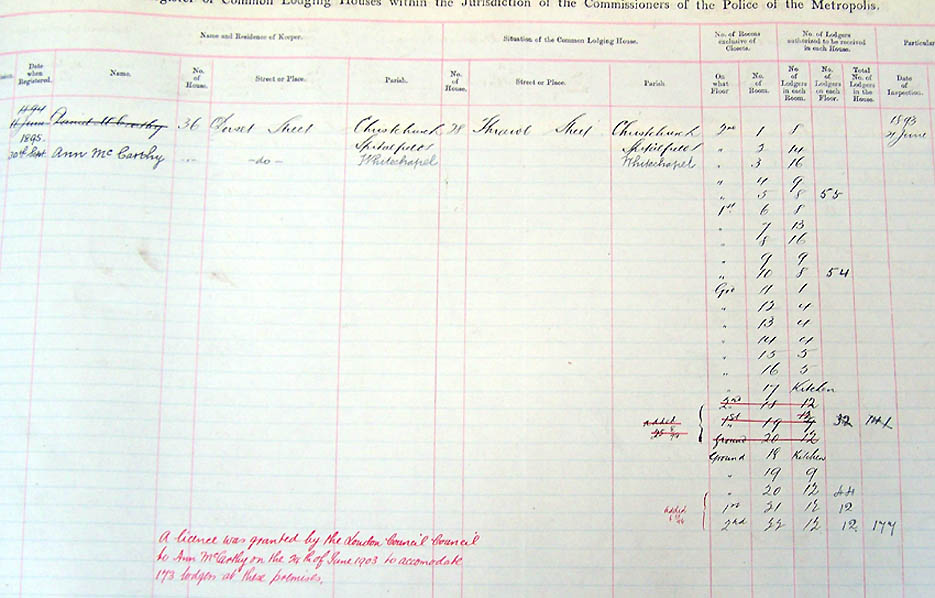 Register of Common Lodging Houses within the Jurisdiction of the Commissioners of the Police of the Metropolis.
Name and Residence of Keeper. Situation of the Common Lodging House. No. of Rooms exclusive of Closets. No. of Lodgers authorized to be received in each House. Particular
Date when Registered. Name. No. of House. Street or Place. Parish. No. of House. Street or Place. Parish On what Floor No. of Room. No. of Lodgers in each Room. No. of Lodgers on each Floor. Total No. of Lodgers in the House. Date of Inspection.
1894 1893
11 June Daniel McCarthy 36 Dorset Street Christchurch 28 Thrawl Street Christchurch 2nd 1 8 21 June
1895. Spitalfields Spitalfields " 2 14
30th Sept. Ann McCarthy -- -do- Whitechapel Whitechapel " 3 16
" 4 9
" 5 8 55
1st 6 8
" 7 13
" 8 16
" 9 9
" 10 8 54
Grd 11 1
" 12 4
" 13 4
" 14 4
" 15 5
" 16 5
" 17 Kitchen
2nd 18 12
added 1st 19 32 141
Ground 20 12
Ground 18 Kitchen
" 19 9
" 20 12 44
added 1st 21 12 12
2nd 22 12 12 177
A licence was granted by the London Council Council
to Ann McCarthy on the 24th of June 1903 to accomodate
173 lodgers at these premises.